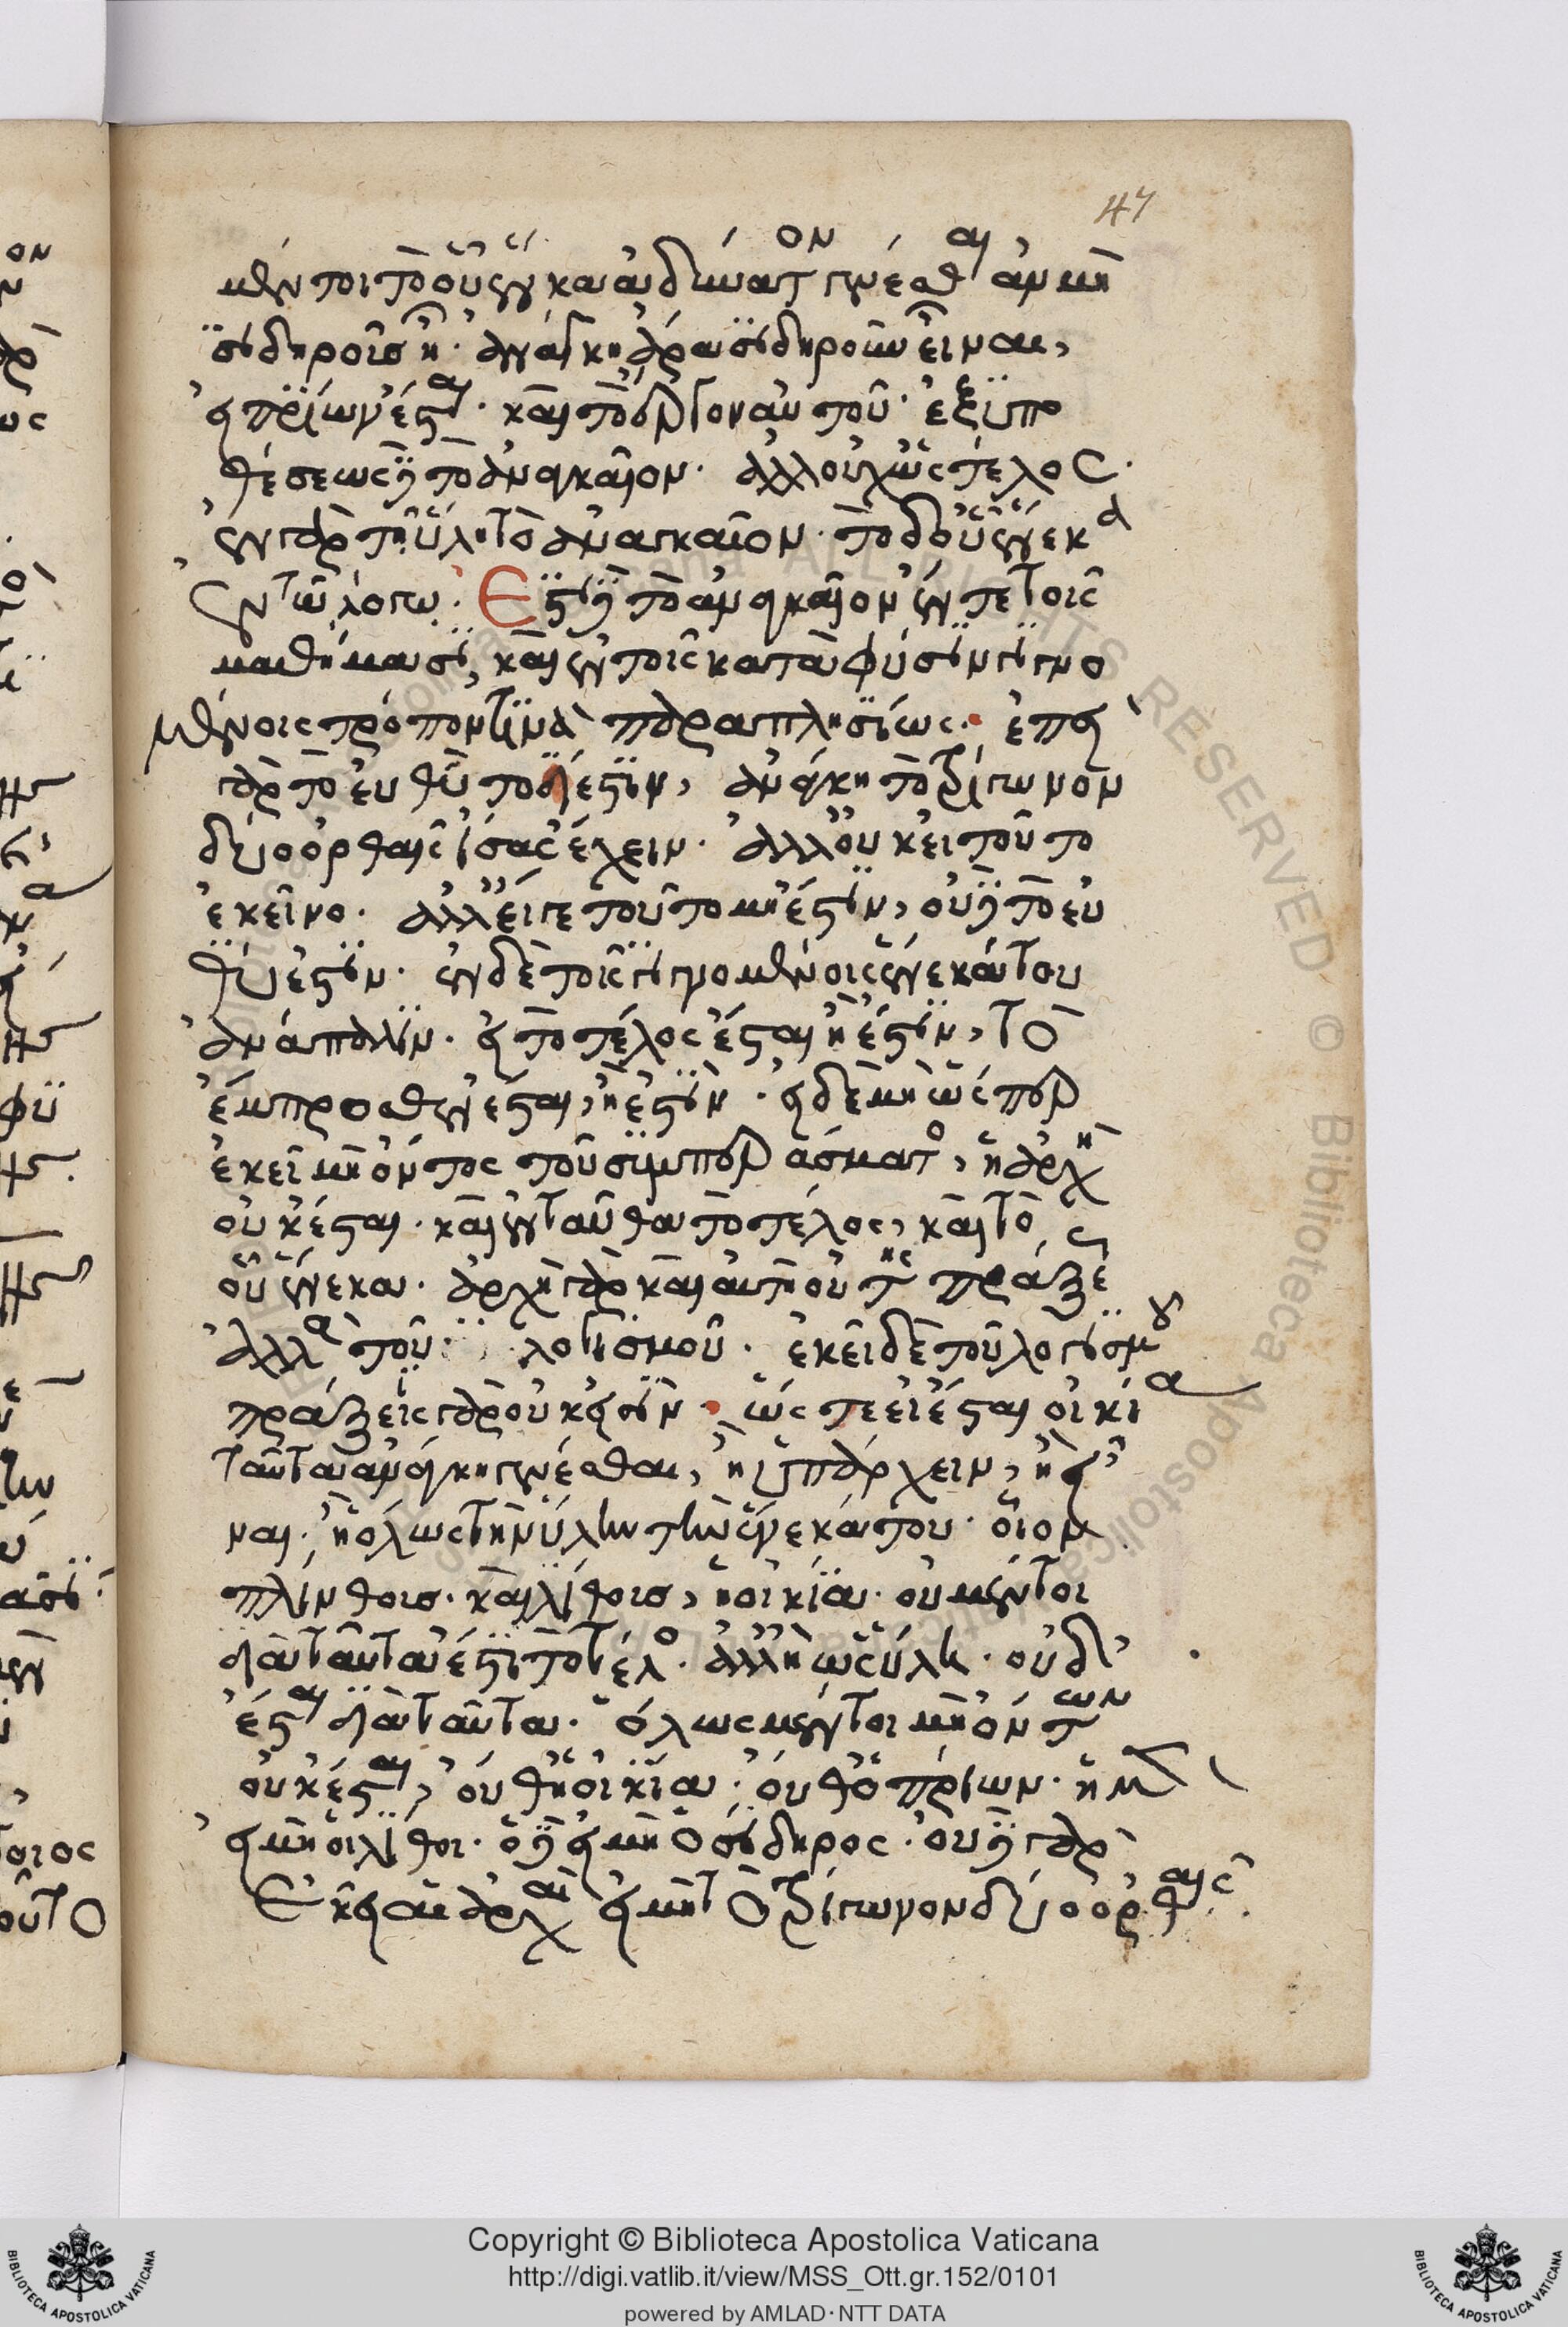 47
μέντοι τὸ οὗ ἕνεκα ἀδύνατον γενέσθαι ἂν μὴ
σιδηροῖς ᾖ. ἀνάγκη ἄρα σιδηροῦν εἶναι,
εἰ πρίων ἔσται. καὶ τὸ ἔργον αὐτοῦ. ἐξ ὑπο
θέσεως δὴ τὸ ἀναγκαῖον. ἀλλ οὐχ ὡς τέλος.
ἐν γὰρ τῇ ὕλῃ τὸ ἀναγκαῖον. τὸ δ οὗ ἕνεκα
ἐν τῷ λόγῳ. Ἔστι δὲ τὸ ἀναγκαῖον ἔν τε τοῖς
μαθήμασι, καὶ ἐν τοῖς κατὰ φύσιν γινο
μένοις τρόπον τινὰ παραπλησίως. ἐπεὶ
γὰρ τὸ εὐθὺ τοδί ἐστιν, ἀνάγκη τὸ τρίγωνον
δύο ὀρθαῖς ἴσας ἔχειν. ἀλλ οὐκ εἰ τοῦτο
ἐκεῖνο. ἀλλ εἴγε τοῦτο μὴ ἔστιν, οὐδὲ τὸ εὐ
θύ ἐστιν. ἐν δὲ τοῖς γινομένοις ἕνεκά του
ἀνάπαλιν. εἰ τὸ τέλος ἔσται ἢ ἔστιν, τὸ
ἔμπροσθεν ἔσται, ἢ ἔστιν. εἰ δὲ μὴ ὥσπερ
ἐκεῖ μὴ ὄντος τοῦ συμπεράσματος, ἡ ἀρχὴ
οὐκ ἔσται. καὶ ἐνταῦθα τὸ τέλος, καὶ τὸ
οὗ ἕνεκα. ἀρχὴ γὰρ καὶ αὕτη οὐ τῆς πράξεως
ἀλλὰ τοῦ λογισμοῦ. ἐκεῖ δὲ τοῦ λογισμοῦ
πράξεις γὰρ οὐκ εἰσίν. ὥστε εἰ ἔσται οἰκία
ταῦτα ἀνάγκη γενέσθαι, ἢ ὑπάρχειν, ἢ εἶ
ναι. ἢ ὅλως τὴν ὕλην τὴν ἕνεκά του. οἷον
πλίνθους. καὶ λίθους, ἢ οἰκία. οὐ μέντοι
διὰ ταῦτα ἐστὶ τὸ τέλος. ἀλλ ἢ ὡς ὕλη. οὐδ
ἔσται διὰ ταῦτα. ὅλως μέντοι μὴ ὄντων
οὐκ ἔσται, οὔθ ἡ οἰκία. οὔθ ὁ πρίων. ἡ μὲν
εἰ μὴ οἱ λίθοι. ὁ δὲ εἰ μὴ ὁ σίδηρος. οὐδὲ γὰρ
ἐκεῖ αἱ ἀρχαὶ εἰ μὴ τὸ τρίγωνον δύο ὀρθαῖς.
Copyright © Biblioteca Apostolica Vaticana
http://digi.vatlib.it/view/MSS_Ott.gr.152/0101
powered by AMLAD·NTT DATA